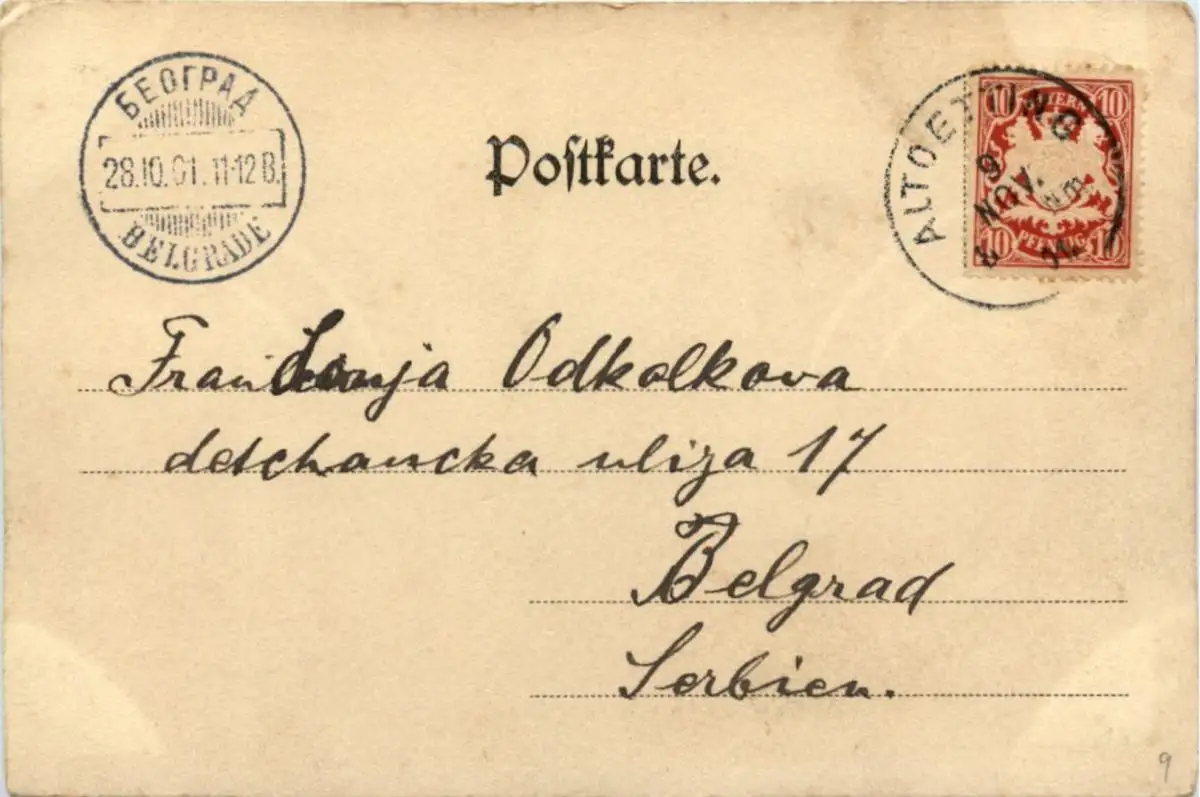 БЕОГРАД
28.10.01.11-12 В.
BELGRADE
Postkarte.
ALTOETTING
9
NOV.
Nm
10 BAYERN 10
10 PFENNIG 10
Odkolkova
detschancka uliza 17
Belgrad
Serbien.
9